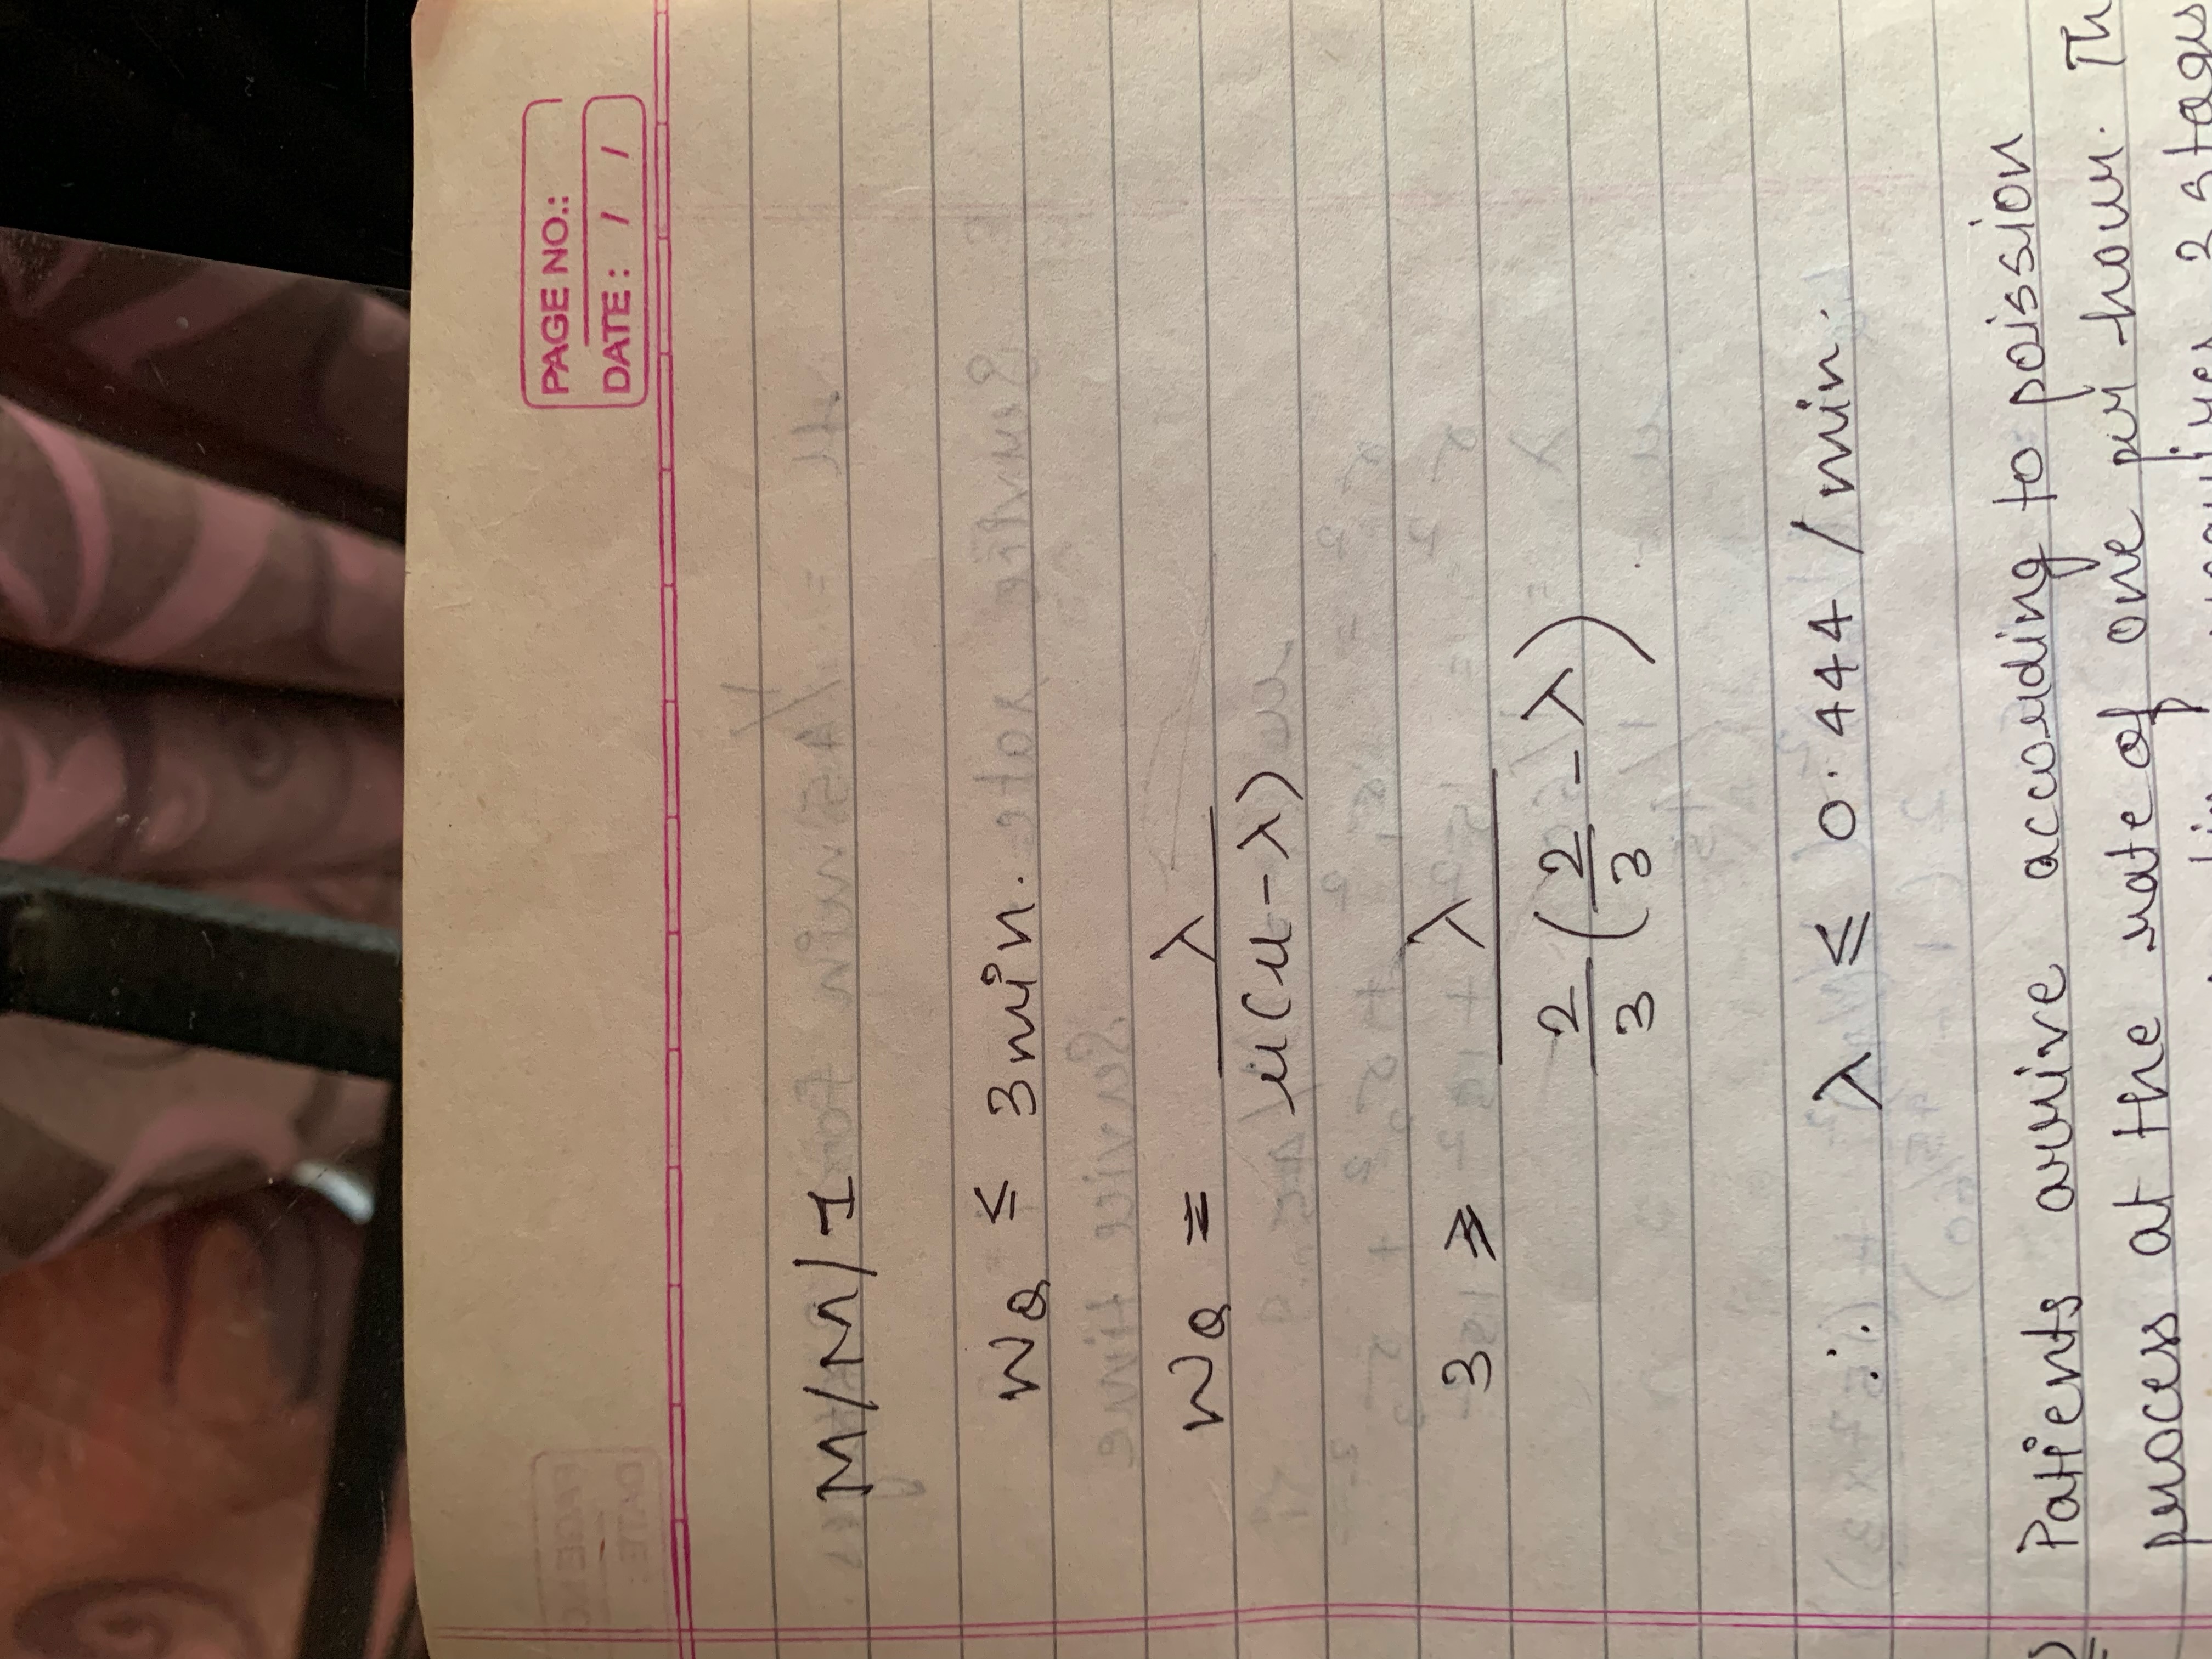 PAGE NO.:
DATE: / /
M/M/1
WQ ≤ 3min.
WQ = λ
μ(μ-λ)
3 ≥ λ
2/3 (2/3 - λ)
∴ λ ≤ 0.444 /min.
Patients arrive according to poission
process at the rate of one per hour. Th
requires 3 stages